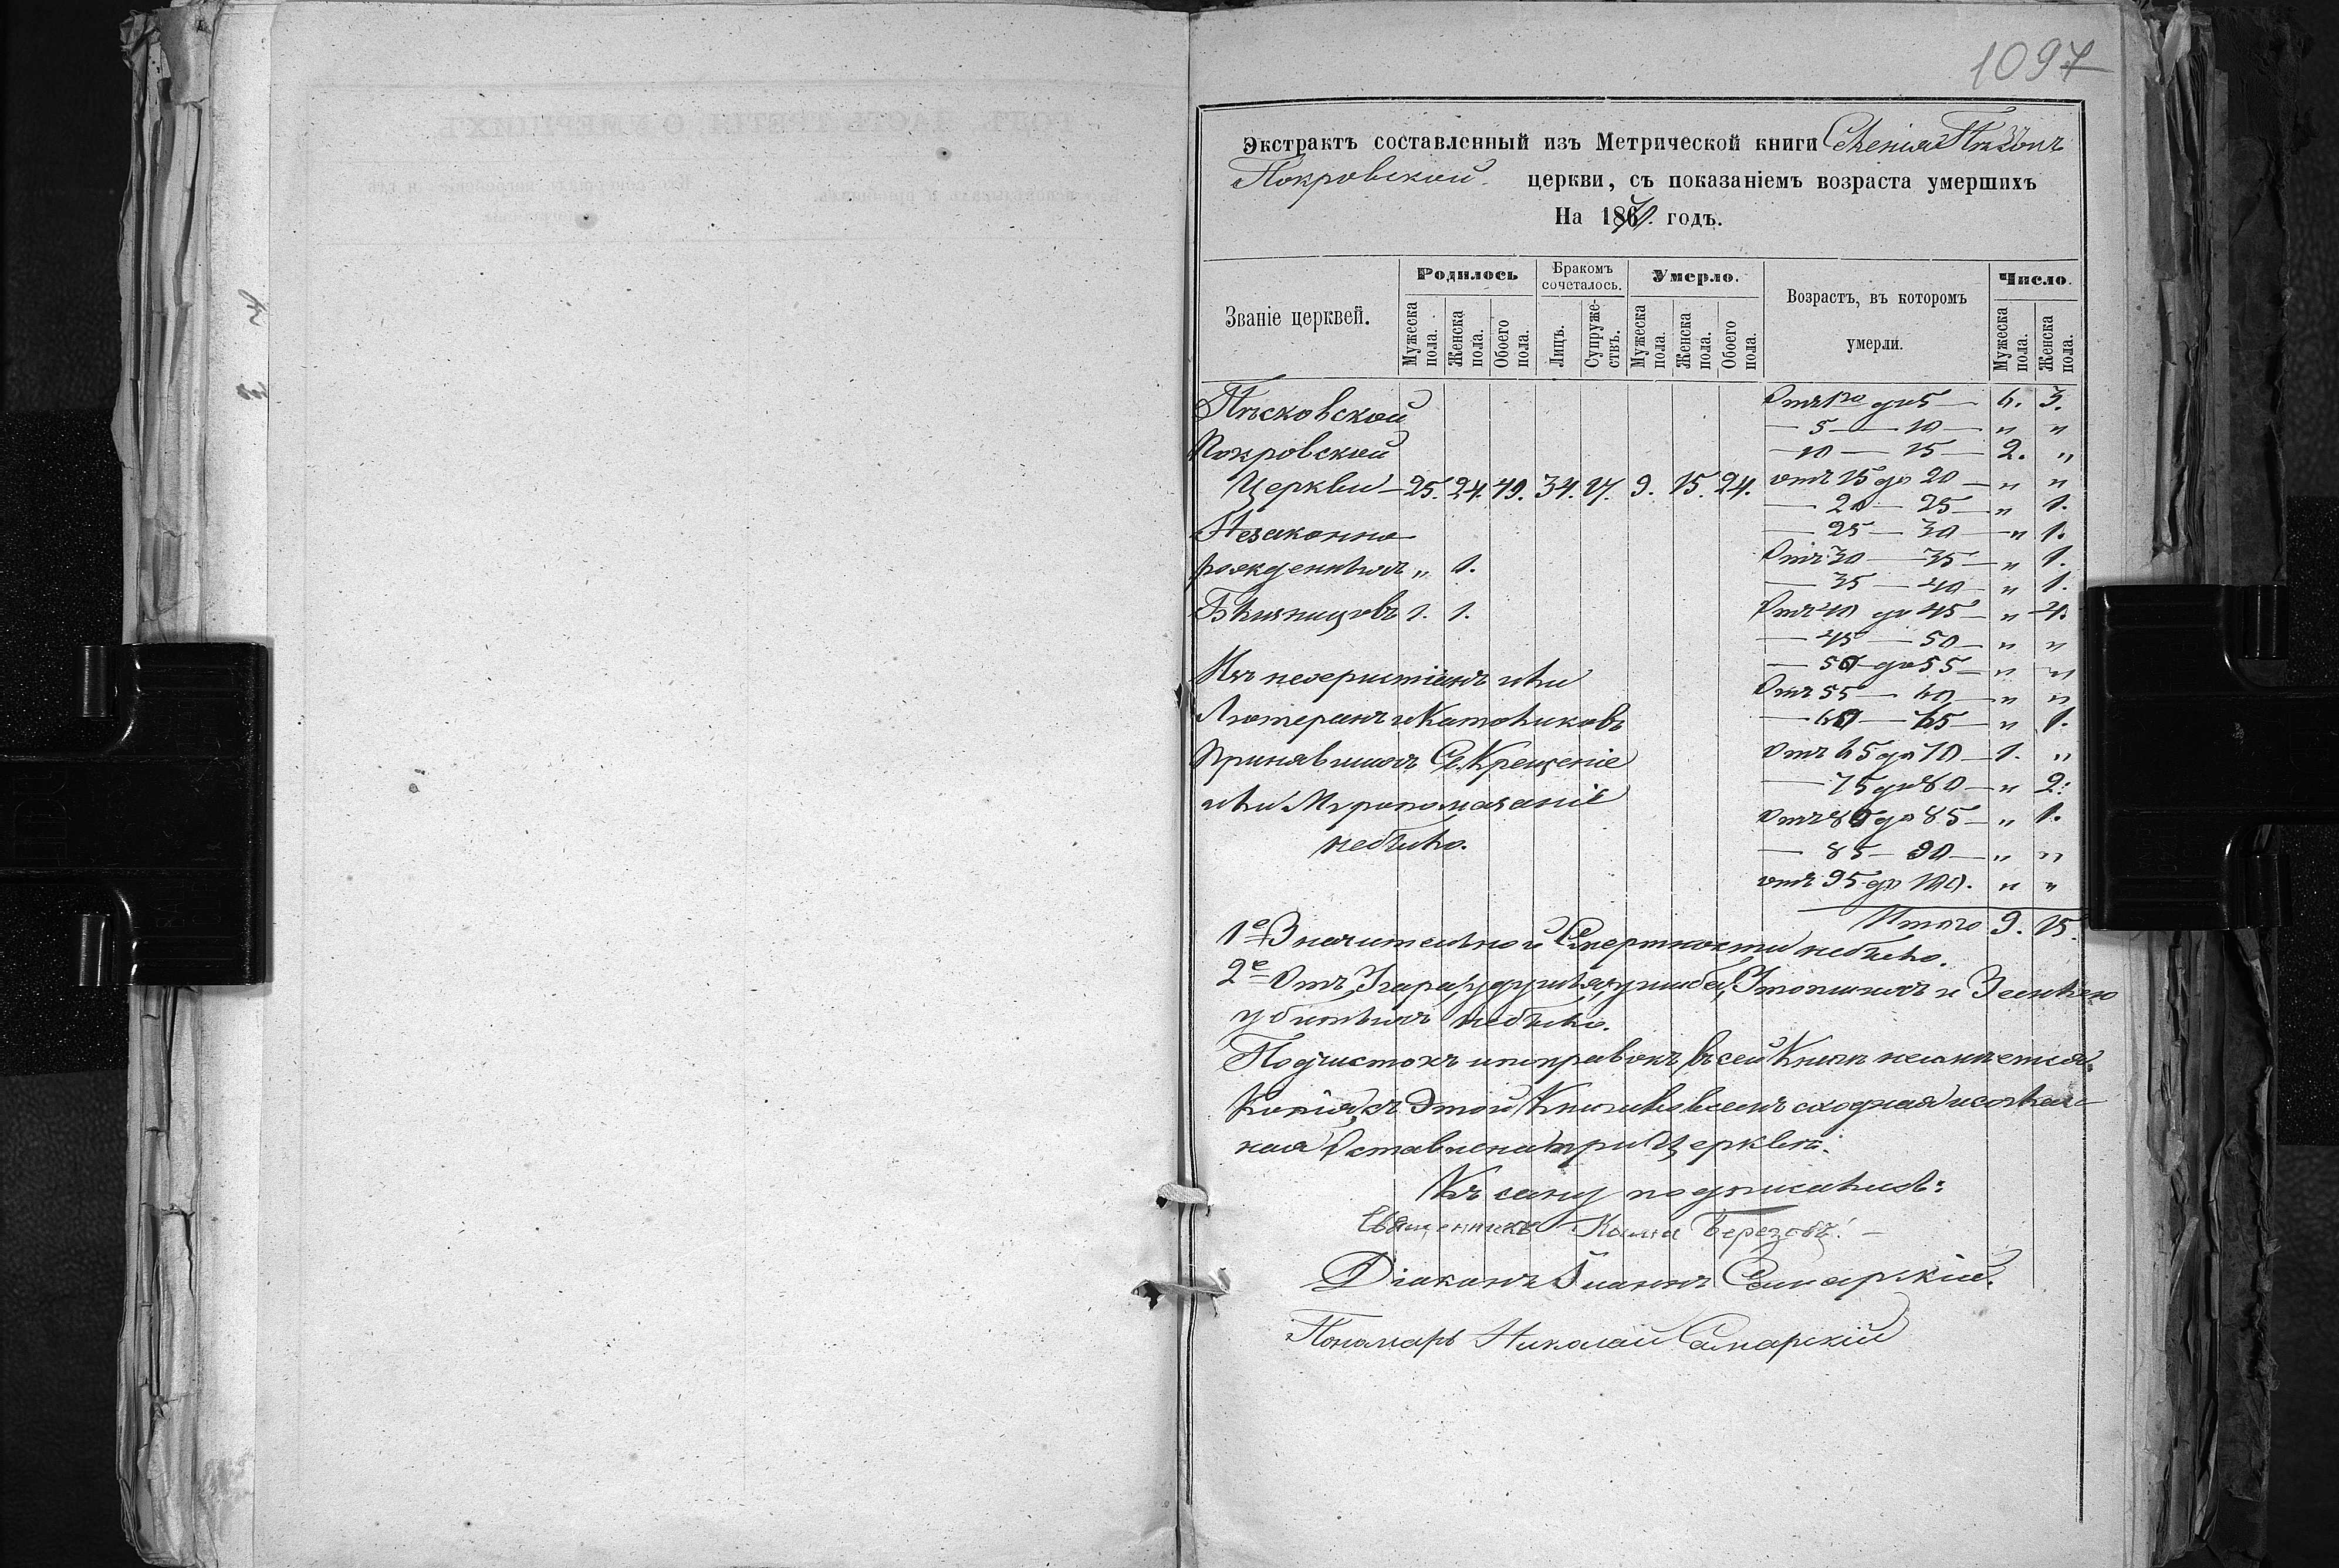 1097
Экстрактъ составленный изъ Метрической книги Селенія Пѣсокъ
Покровской церкви, съ показаніемъ возраста умершихъ
На 1870 годъ.
Званіе церквей. Родилось Бракомъ сочеталось. Умерло. Возрастъ, въ которомъ умерли. Число.
Мужеска пола. Женска пола. Обоего пола. Лицъ. Супружествъ. Мужеска пола. Женска пола. Обоего пола. Мужеска пола. Женска пола.
Пѣсковской
Покровской
Церкви — 25. 24. 49. 34. 17. 9. 15. 24.
Незаконно
рожденныхъ „ 1.
Близнецовъ 1. 1.
Изъ нехристіанъ или
Лютеранъ и Католиковъ
Принявшихъ Св. Крещеніе
или Мѵропомазаніе
небыло.
Отъ 1го до 5 — 6. 3.
— 5 — 10 — „ „
— 10 — 15 — 2. „
отъ 15 до 20 — „ „
— 20 — 25 — „ 1.
— 25 — 30 — „ 1.
Отъ 30 — 35 — „ 1.
— 35 — 40 — „ 1.
Отъ 40 до 45 — „ 4.
— 45 — 50 — „ „
— 50 до 55 — „ „
Отъ 55 — 60 — „ „
— 60 — 65 — „ 1.
Отъ 65 до 70 — 1. „
— 75 до 80 — „ 2.
Отъ 80 до 85 — „ 1.
— 85 — 90 — „ „
отъ 95 до 100. „ „
Итого 9. 15.
1е Значительной Смертности небыло.
2е Отъ Угара, удушья, ушиба, Утопшихъ и Землею
убитыхъ небыло.
Подчистокъ и поправокъ въ сей Книгѣ неимѣется.
Копія съ Этой Книги во всемъ сходная и
ная Оставлена при Церкви:
Къ сему подписались:
Священникъ Березовъ. —
Діаконъ Іоаннъ Самарскій.
Пономарь Николай Самарскій